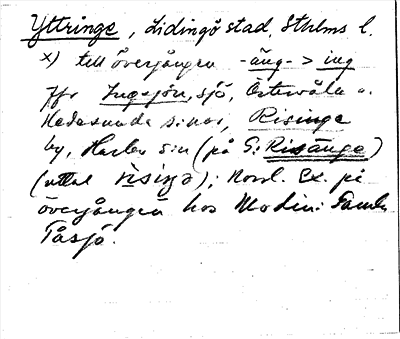 Yttringe, Lidingö stad, Sthlms l.
x) till övergången -äng- > ing
Jfr Ingsjön, sjö, Östervåla o.
Hedesunda snar, Risinge
by, Harbo sn (på G: Risänge)
(uttal risiŋə); Norrl. Ex. på
övergången hos Modin: Gamla
Tåsjö.